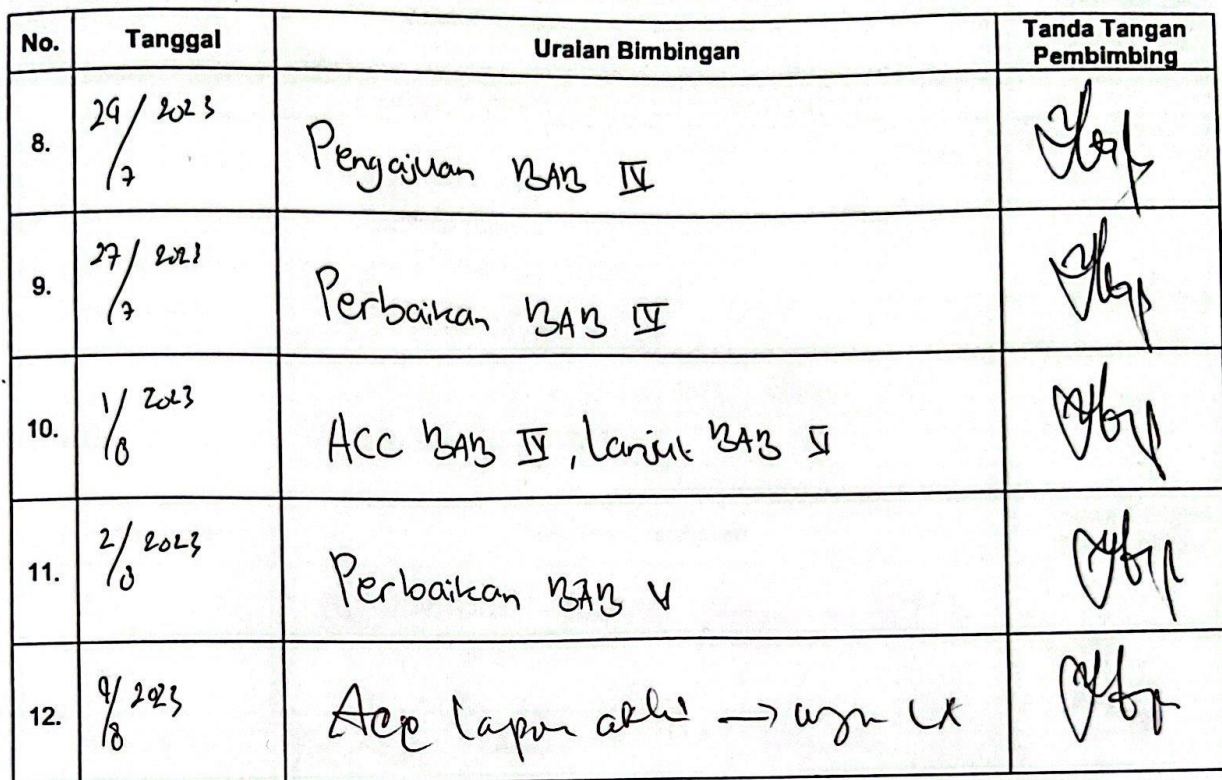 No. Tanggal Uraian Bimbingan Tanda Tangan Pembimbing
8. 2023 /7 Pengajuan BAB IV
9. 27/7 2023 Perbaikan BAB IV
10. 1/8 2023 ACC BAB IV, lanjut BAB V
11. 2/8 2023 Perbaikan BAB V
12. /8 2023 Acc →